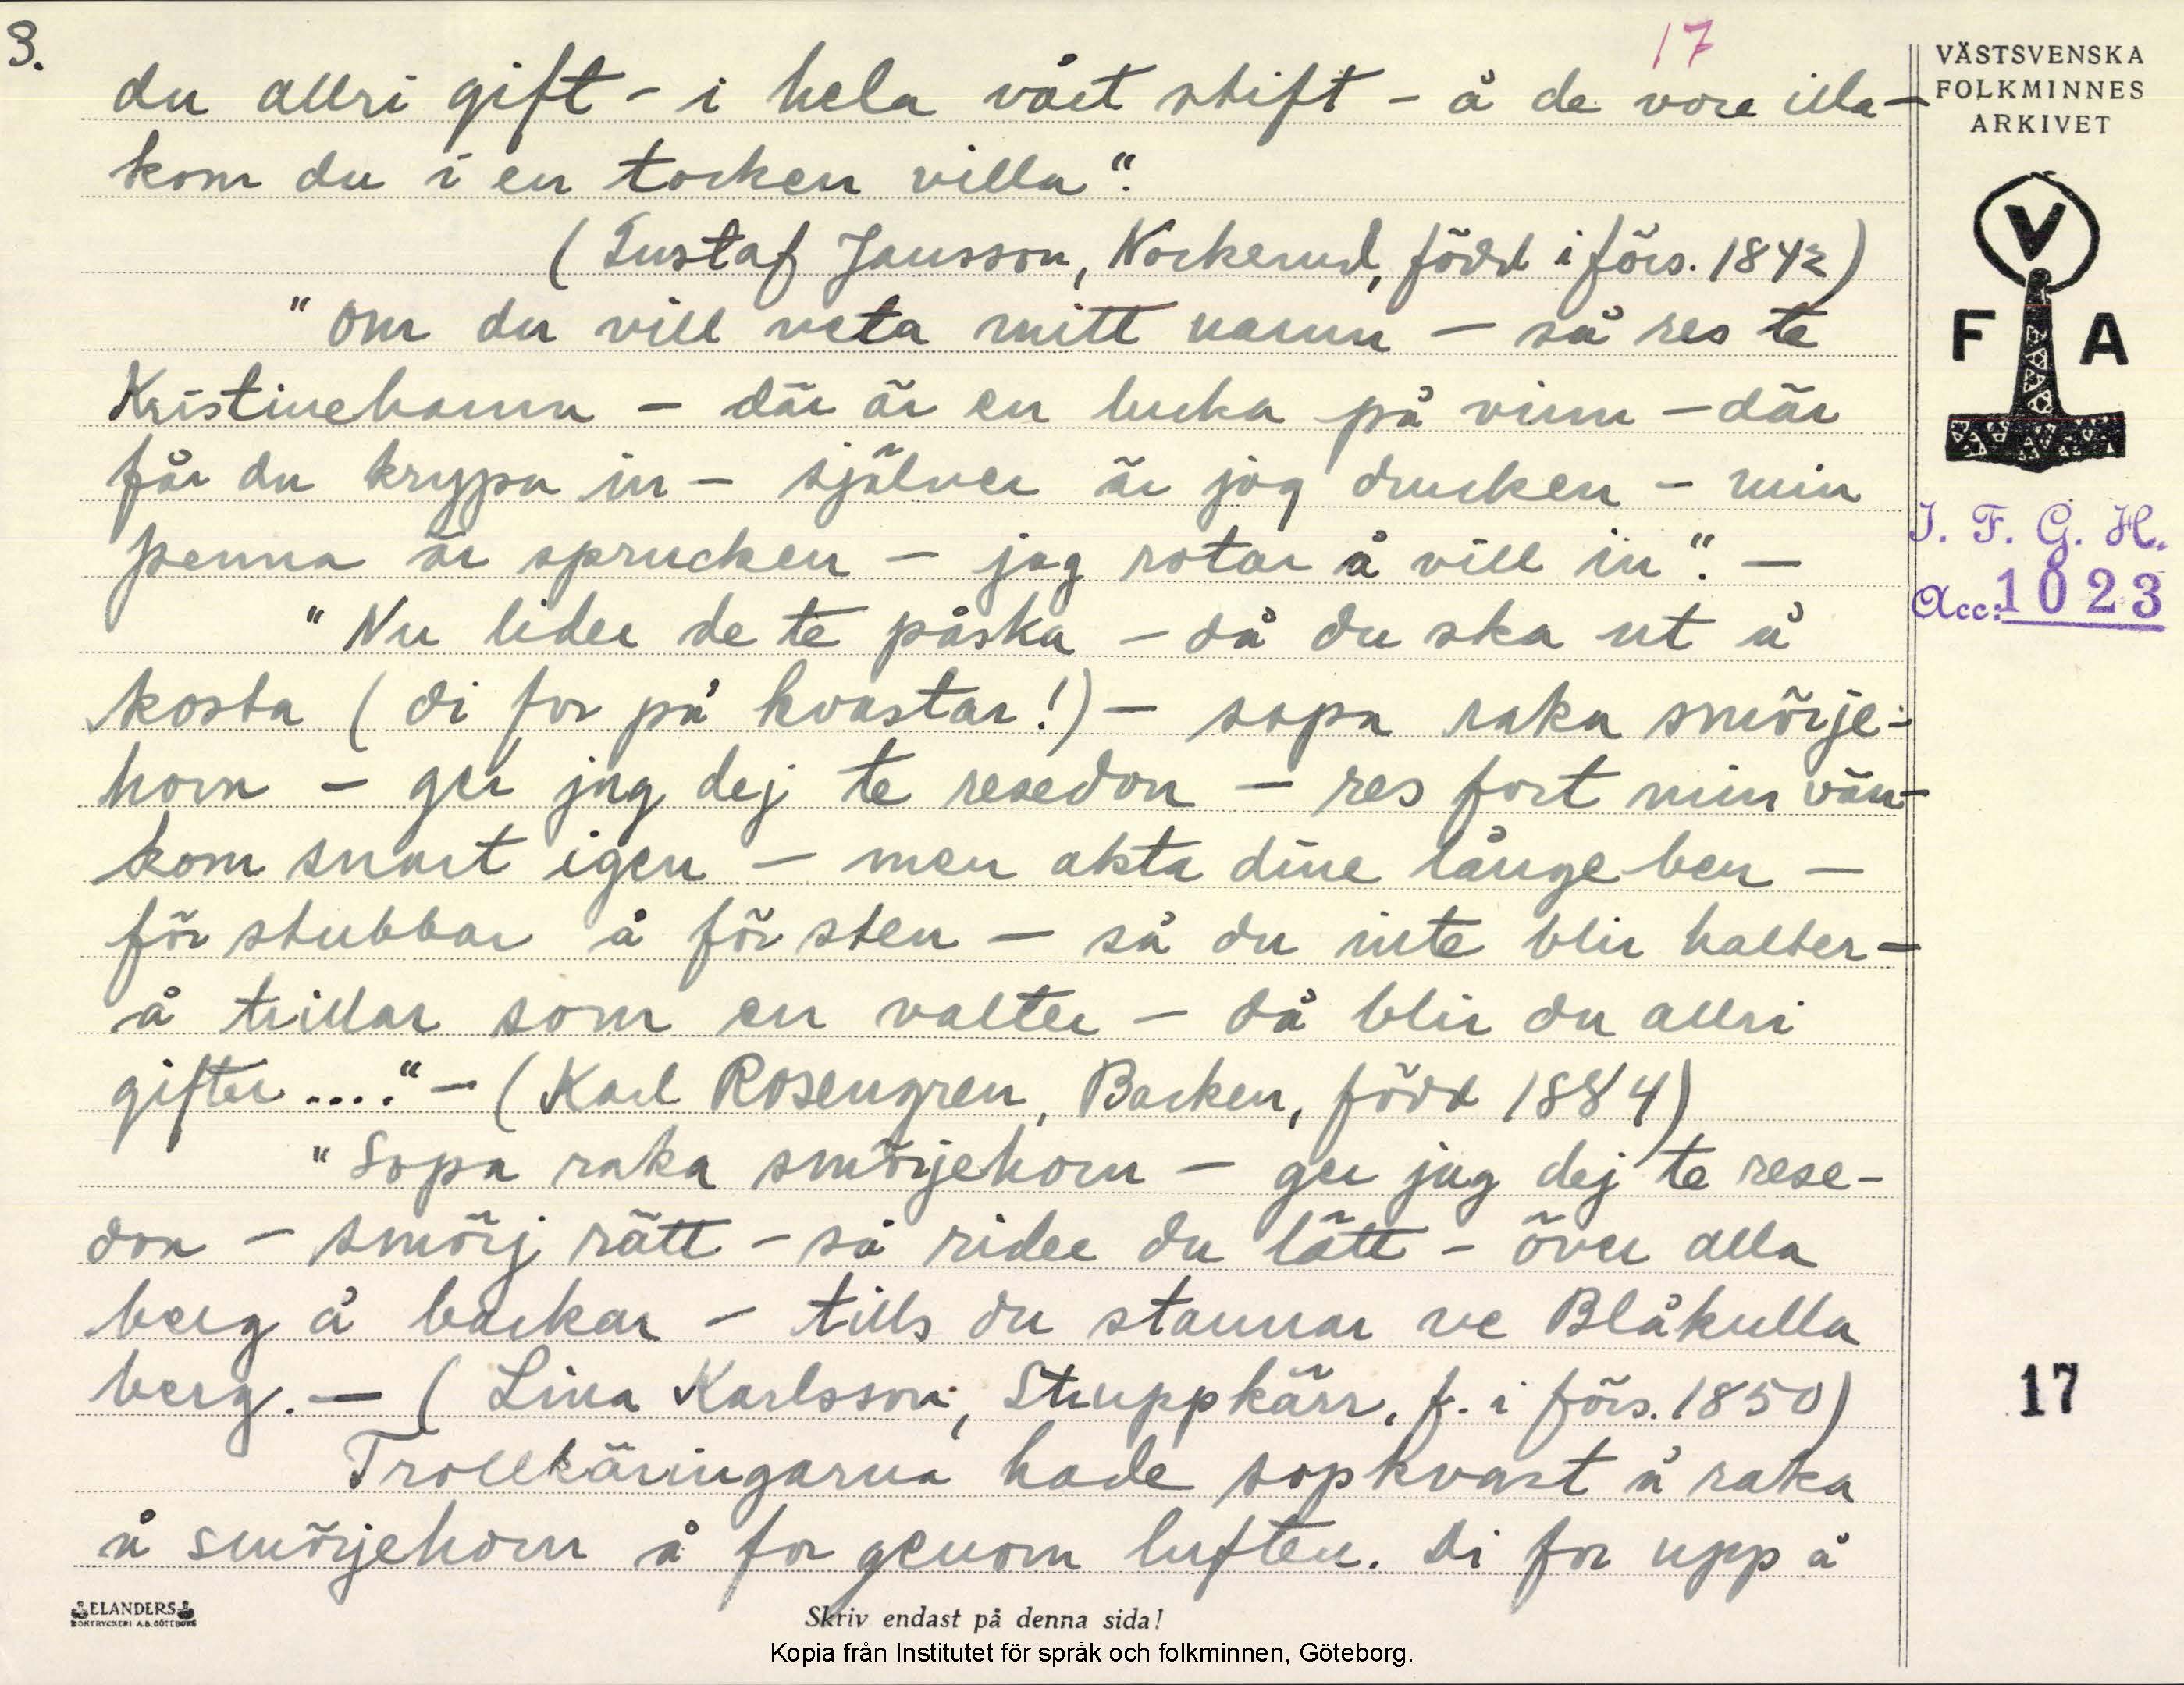 3.
17
du allri gift - i hela vårt stift - å de vore illa -
kom du i en tocken villa".
(Gustaf Jansson, Nockerud, född i förs. 1842)
"Om du vill veta mitt namn - så res te
Kristinehamn - där är en lucka på vinn - där
får du krypa in - själver är jag drucken - min
penna är sprucken - jag rotar å vill in". -
"Nu lider de te påska - då du ska ut å
kosta (di for på kvastar!) - sopa raka smörje-
horn - ger jag dej te resedon - res fort min vän -
kom snart igen - men akta dine långe ben -
för stubbar å för sten - så du inte blir halter -
å trillar som en valter - då blir du allri
gifter ...." - (Karl Rosengren, Backen, född 1884)
"Sopa raka smörjehorn - ger jag dej te rese-
don - smörj rätt - så rider du lätt - över alla
berg å backar - tills du stannar ve Blåkulla
berg. - (Lina Karlsson, Struppkärr, f. i förs. 1850)
Trollkäringarna hade sopkvast å raka
å smörjehorn å for genom luften. Di for upp å
VÄSTSVENSKA
FOLKMINNES
ARKIVET
V
F A
I. F. G. H.
Acc: 1023
17
ELANDERS
BOKTRYCKERI A.B. GÖTEBORG
Skriv endast på denna sida!
Kopia från Institutet för språk och folkminnen, Göteborg.